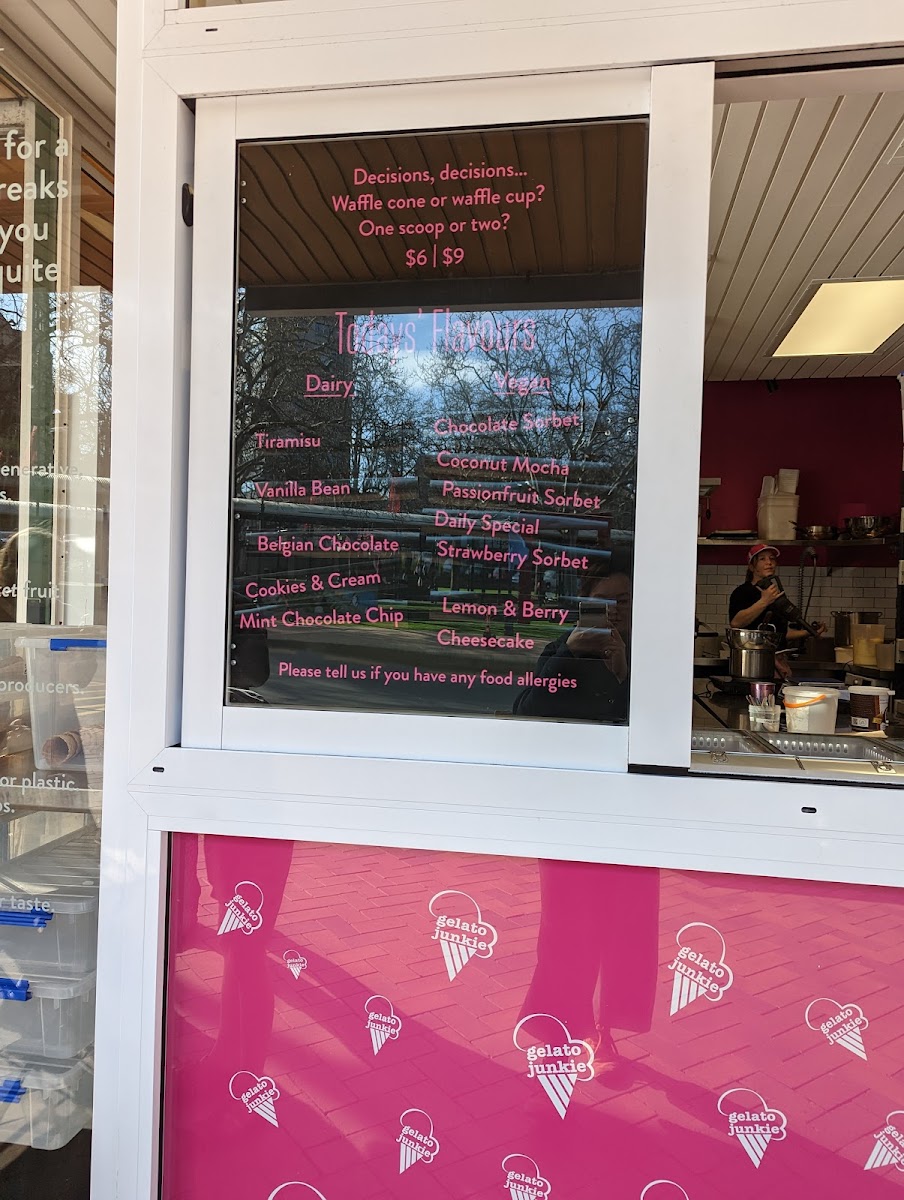 for a
reaks
you
quite
enerative
s.
et fruit
producers.
or plastic
ps.
r taste.
Decisions, decisions...
Waffle cone or waffle cup?
One scoop or two?
$6 | $9
Todays' Flavours
Dairy
Tiramisu
Vanilla Bean
Belgian Chocolate
Cookies & Cream
Mint Chocolate Chip
Vegan
Chocolate Sorbet
Coconut Mocha
Passionfruit Sorbet
Daily Special
Strawberry Sorbet
Lemon & Berry
Cheesecake
Please tell us if you have any food allergies
gelato
junkie
gelato
junkie
gelato
junkie
gelato
junkie
gelato
junkie
gelato
junkie
gelato
junkie
gelato
junkie
gelato
junkie
gelato
junkie
gelato
junkie
gelato
junkie